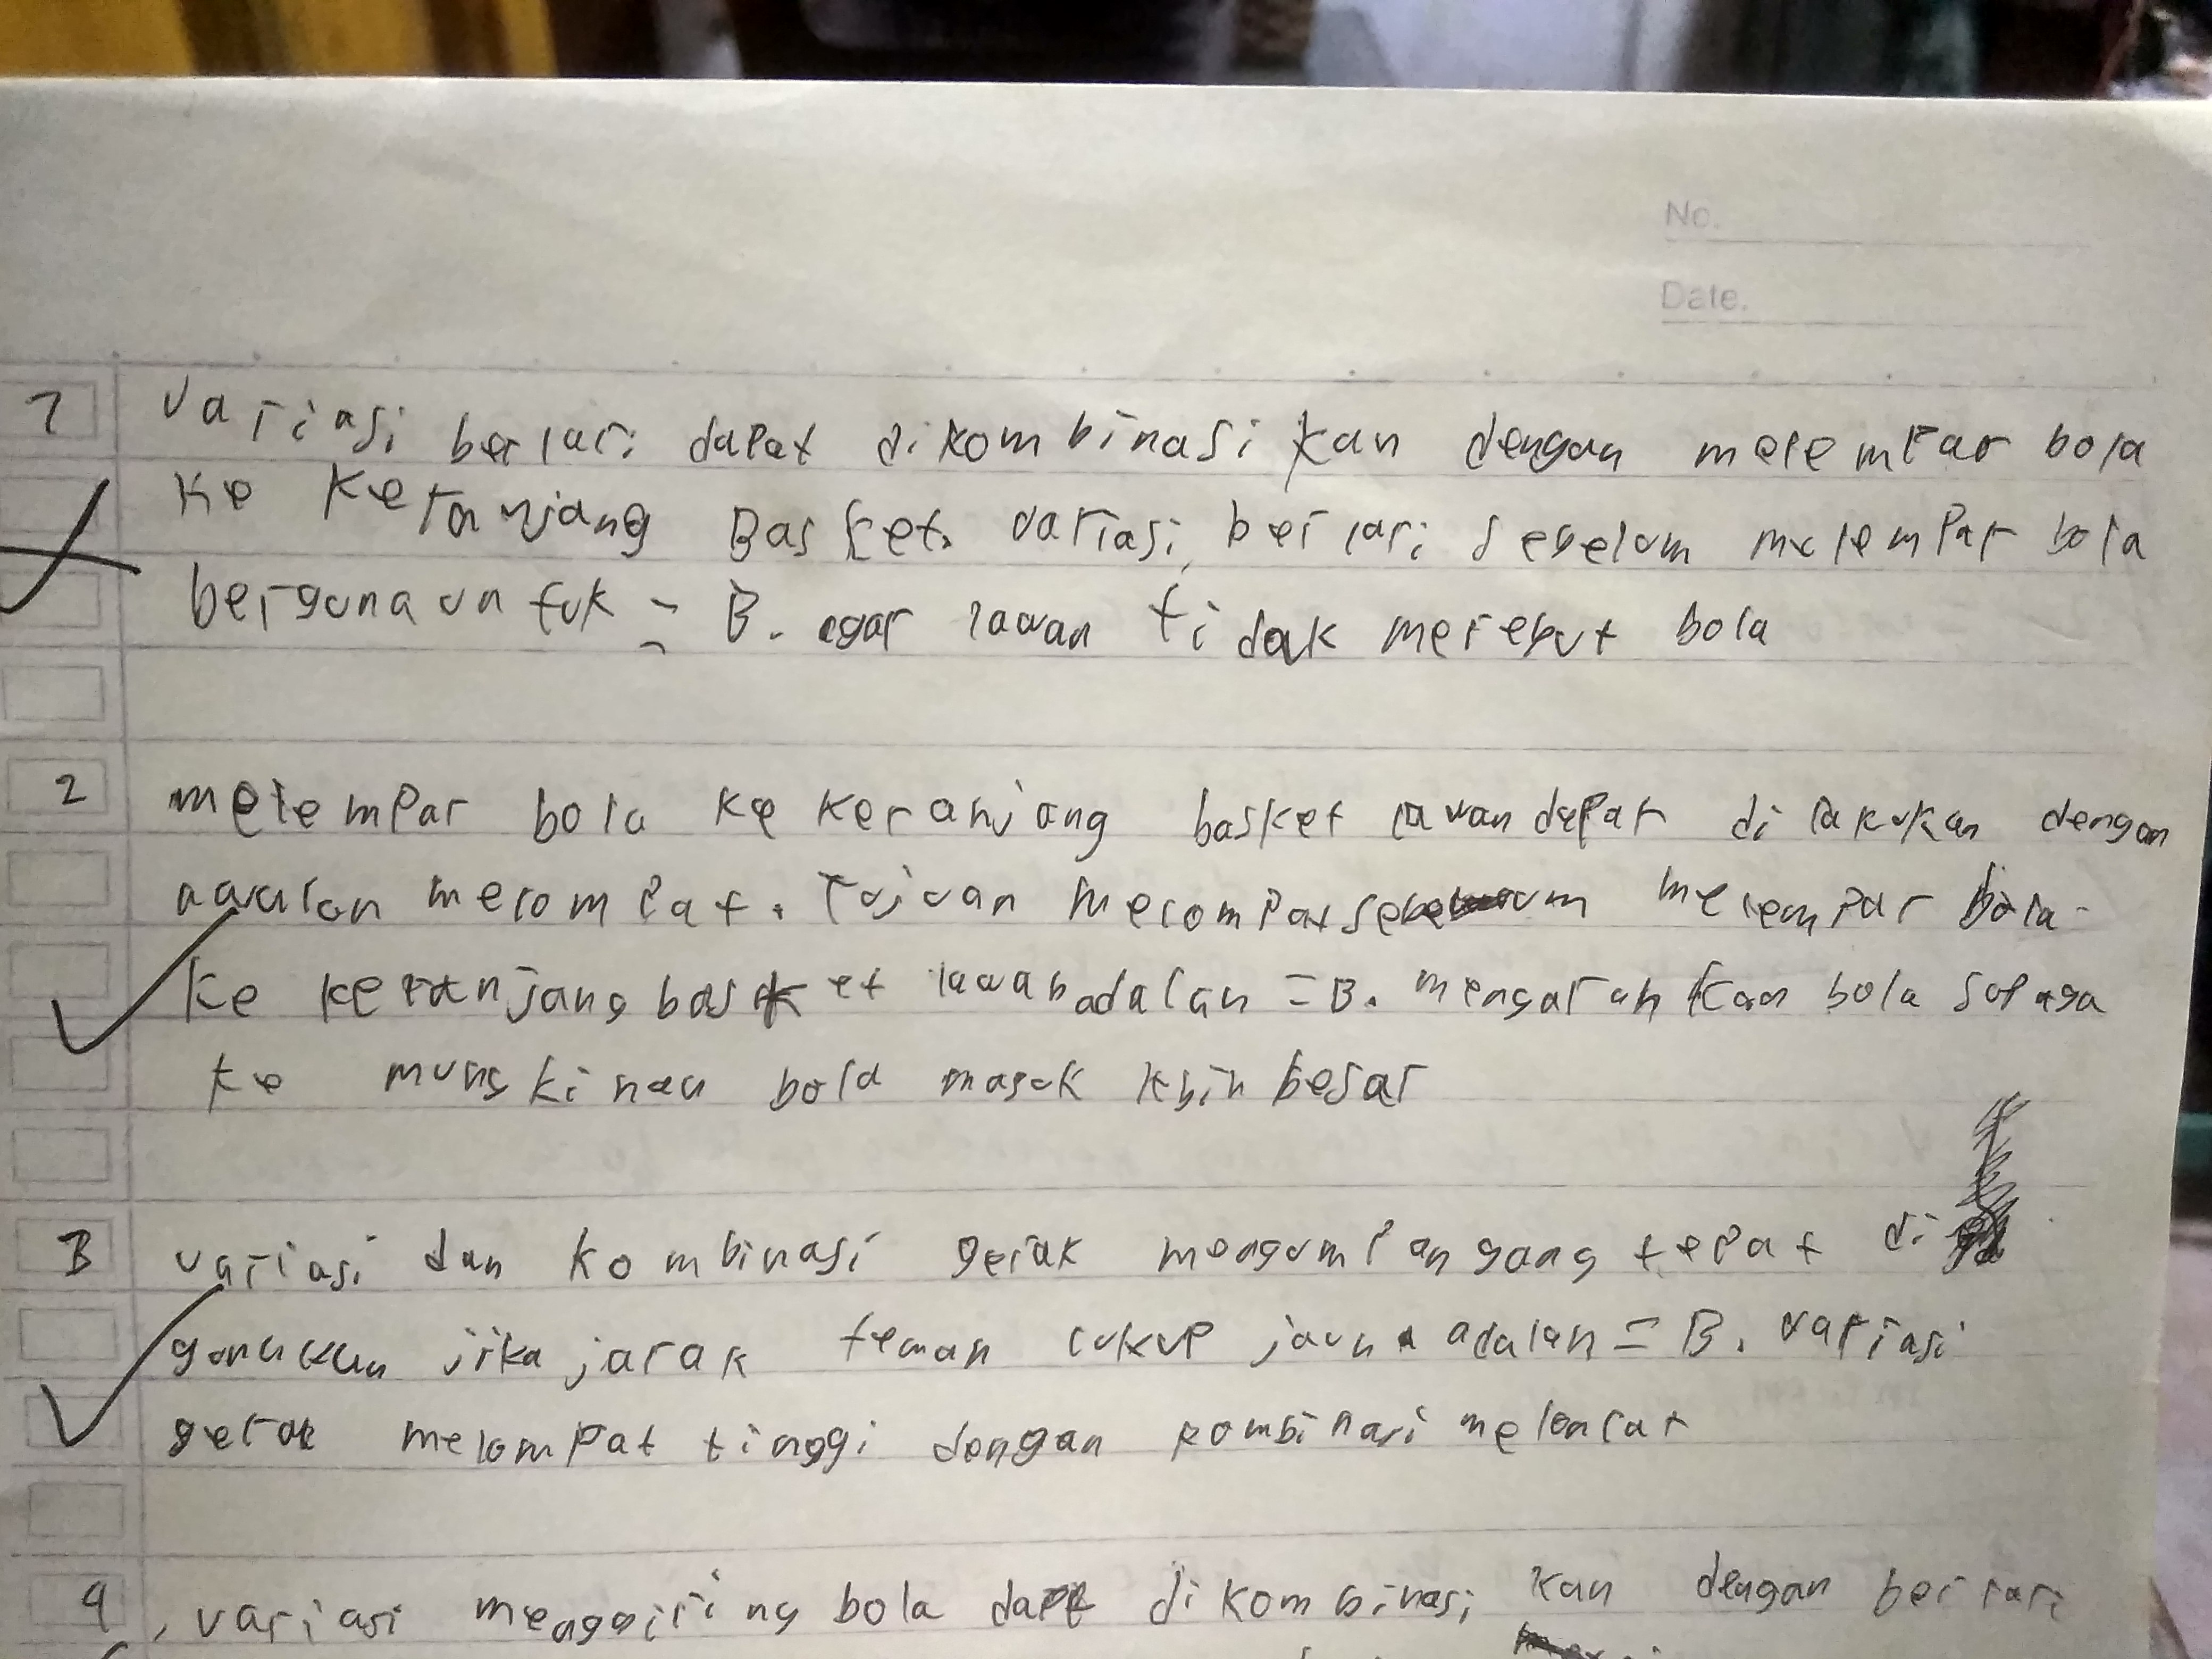 No.
Date.
1 Variasi berlari dapat dikombinasikan dengan melempar bola
ke keranjang Basket. variasi berlari sebelum melempar bola
berguna untuk = B. agar lawan tidak merebut bola
2 melempar bola ke keranjang basket lawan dapat di lakukan dengan
awalan melompat. Tujuan melompat sebelum melempar bola
ke keranjang basket lawan adalah = B. mengarahkan bola supaya
ke mungkinan bola masuk lebih besar
3 variasi dan kombinasi gerak mengumpan yang tepat di
gunakan jika jarak teman cukup jauh adalah = B. variasi
gerak melompat tinggi dengan kombinasi meloncat
4, variasi menggiring bola dapt di kombinasi kan dengan berlari